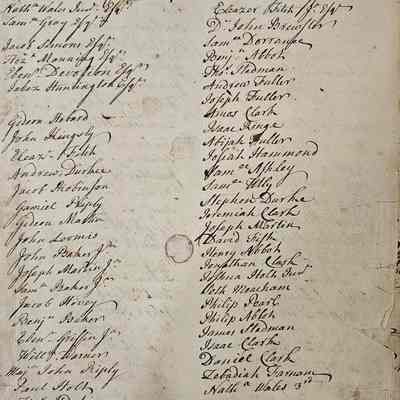 Nathll Wales Junr. Esqr.
Saml Gray Esqr.
Jacob Simons Esqr.
Hez. Manning Esqr.
Ebenr. Devotion Esqr.
Jabez Huntington Esqr.
Gideon Hebard
John Kingsly
Eleazr. Fitch
Andrew Durkee
Jacob Robinson
Gamiel Riply
Gideon Martin
John Loomis
John Baker Jr.
Joseph Martin Jr.
Saml Baker Jr.
Jacob Hovey
Benjn Baker
Ebenr. Griffin Jr.
Willm Warner
Majr John Riply
Paul Holt
Eleazer Fitch Jr. Esqr.
Dr. John Brewster
Saml Dorrance
Benjn Abbot
Thos. Stedman
Andrew Fuller
Joseph Fuller
Amos Clark
Isaac Ringe
Abijah Fuller
Josiah Hammond
Samll Ashley
Saml
Stephen Durke
Jeremiah Clark
Joseph Martin
David Fisk
Henry Abbot
Jonathan Clark
Joshua Holt Junr
Seth Meacham
Philip Pearl
Philip Abbot
James Stedman
Isaac Clark
Daniel Clark
Zebadiah Farnam
Nathll Wales 3rd